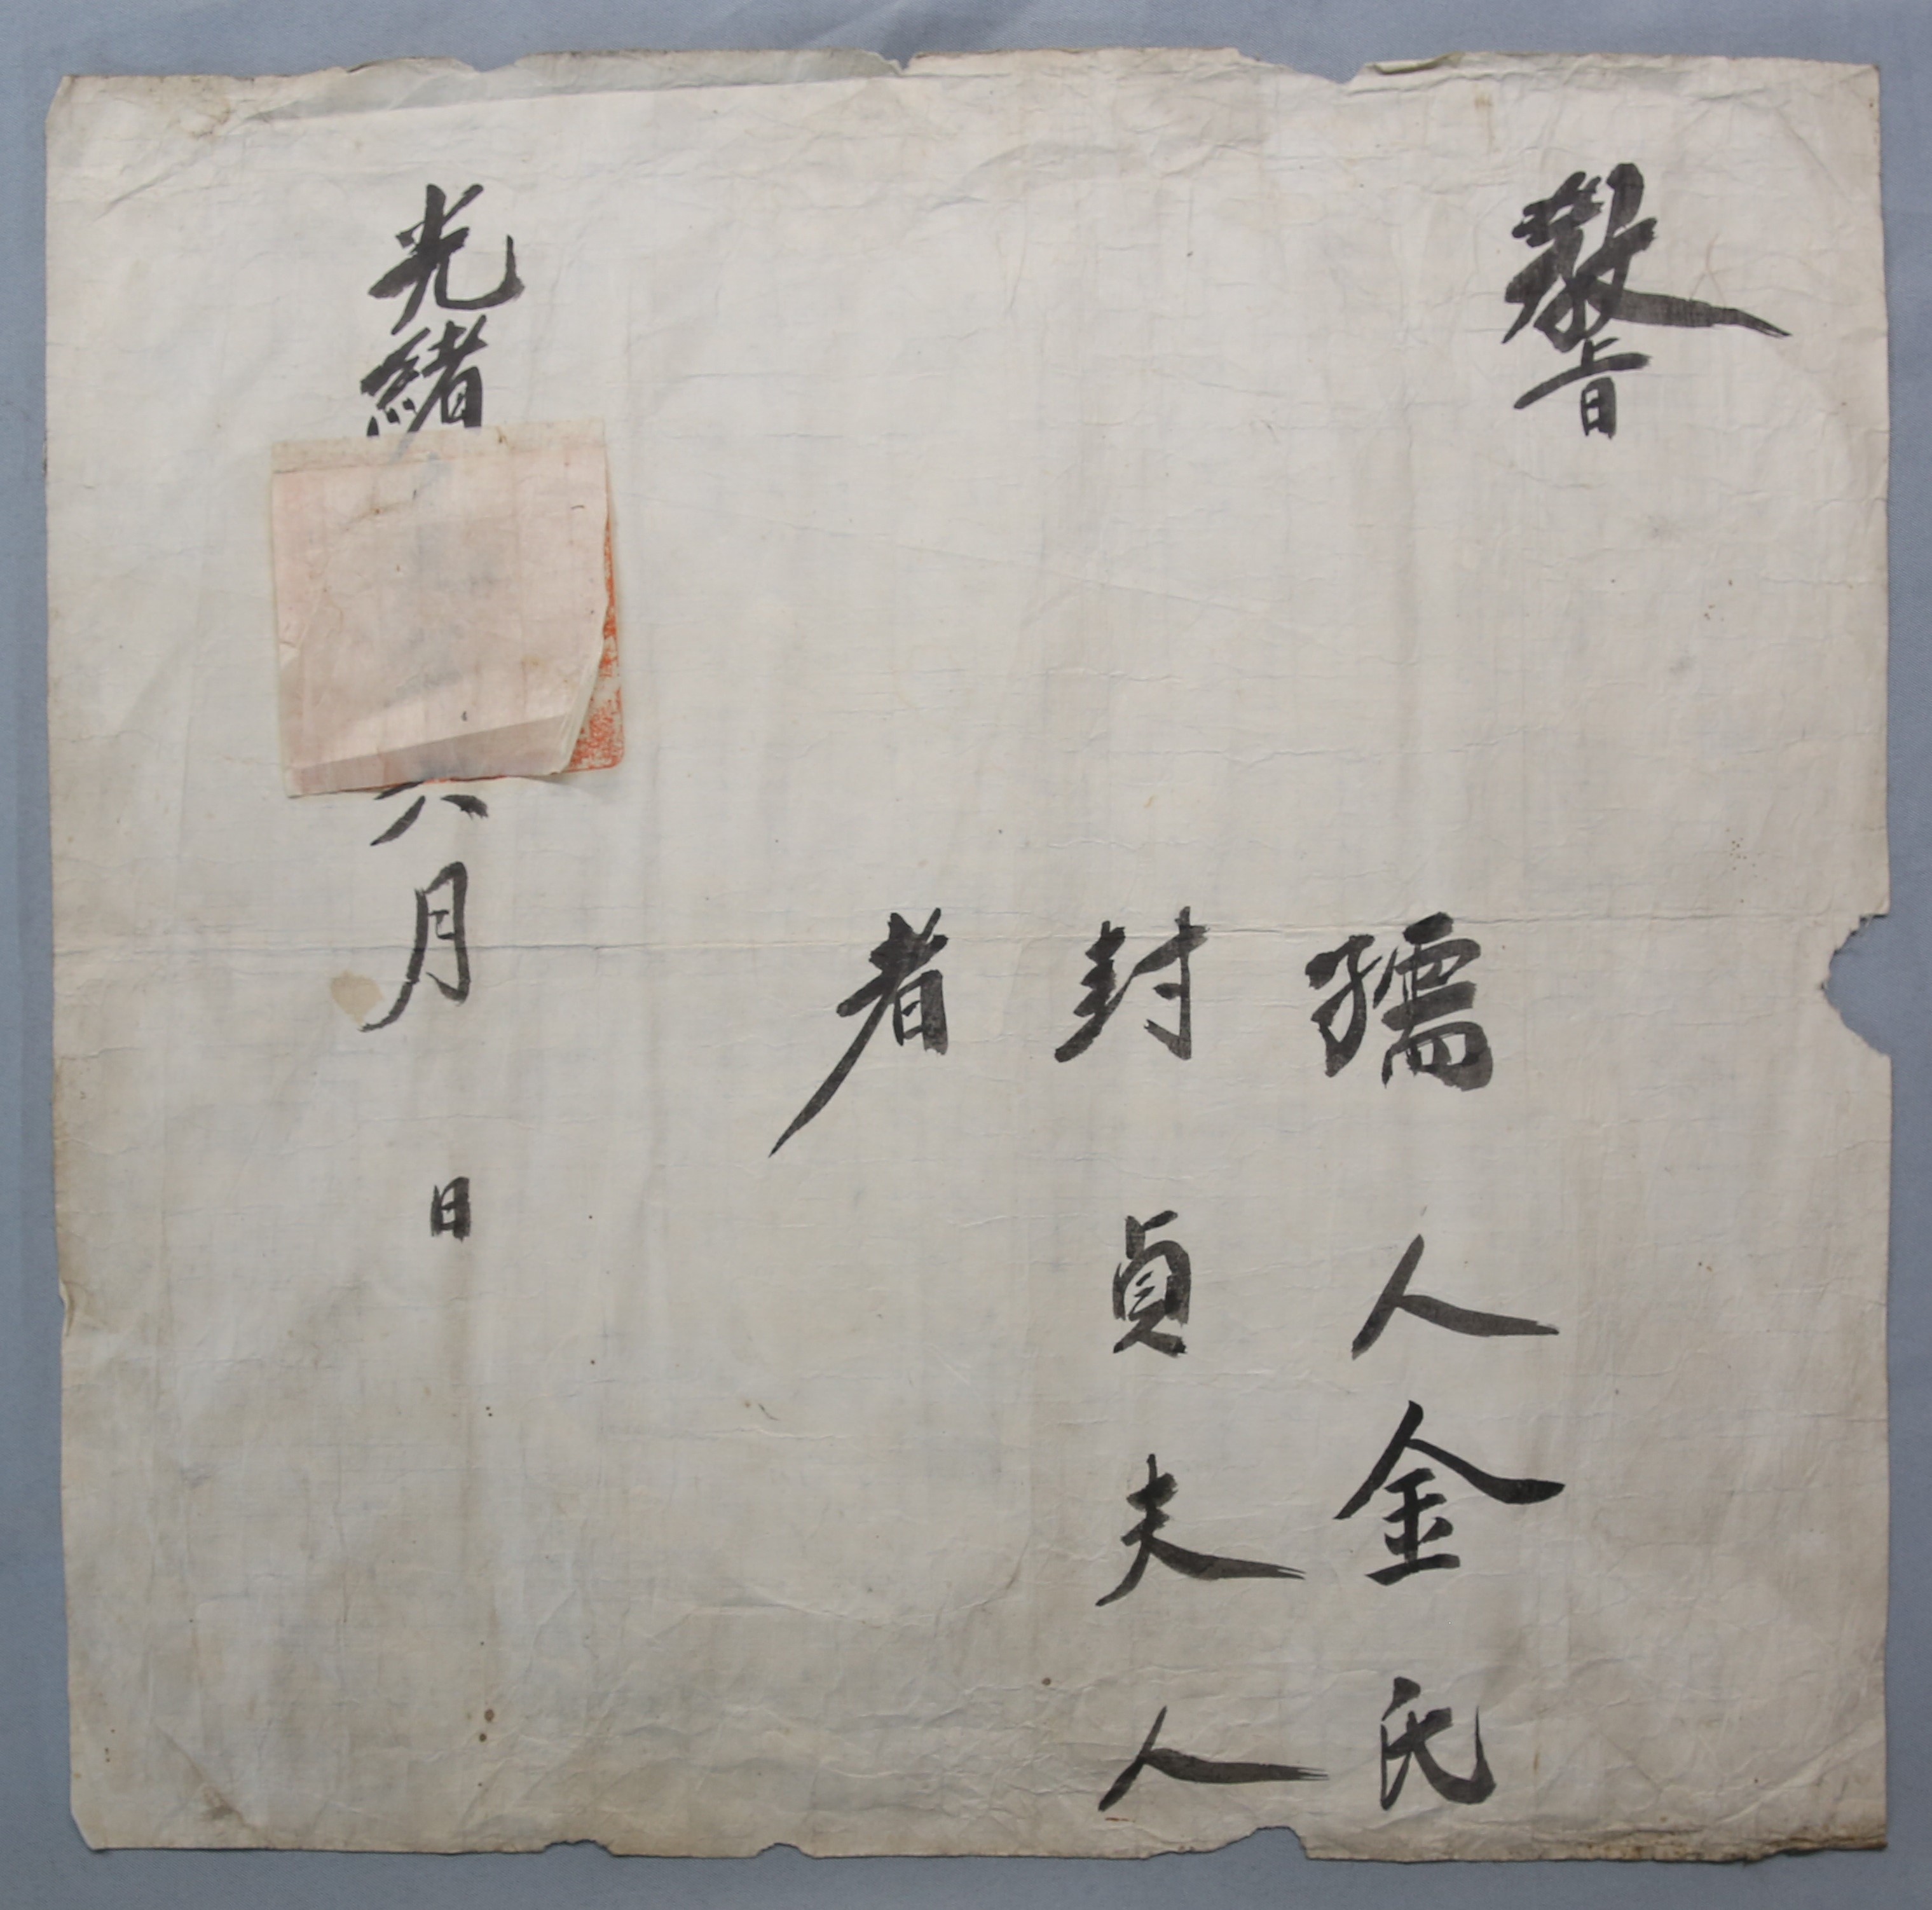 敎旨
孺人金氏
封貞夫人
者
光緒
月 日